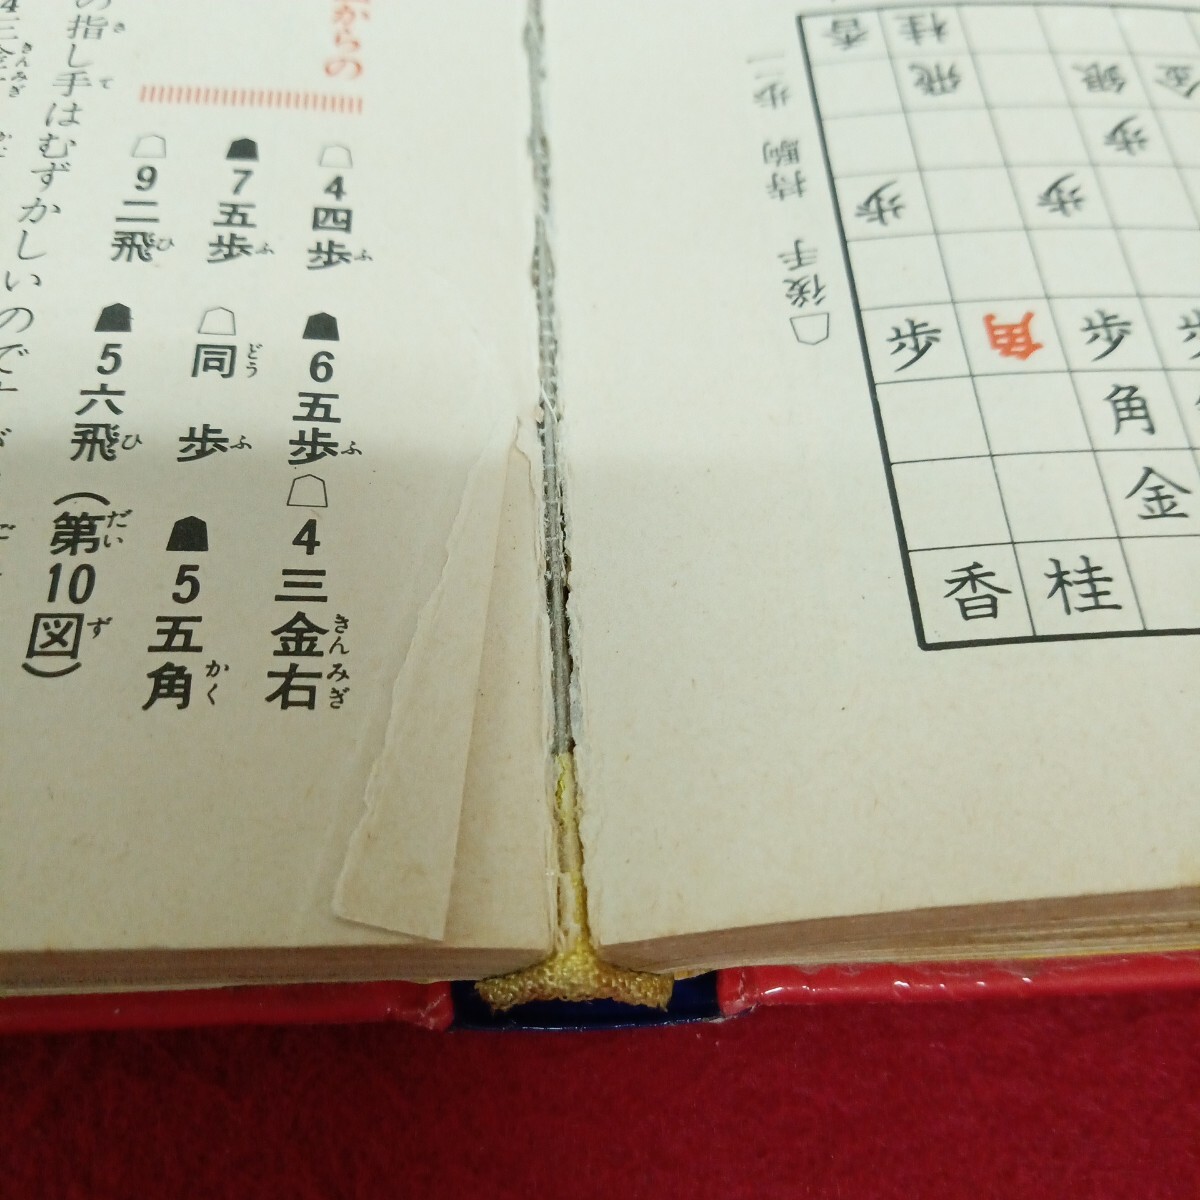 からの
☖4四歩 ☗6五歩 ☖4三金右
☗7五歩 ☖同歩 ☗5五角
☖9二飛 ☗5六飛(第10図)
の指し手はむずかしいのです
☖後手 持駒 歩二
香 桂
飛 銀 金
歩
歩 歩
歩 角 歩 歩
角
金
香 桂